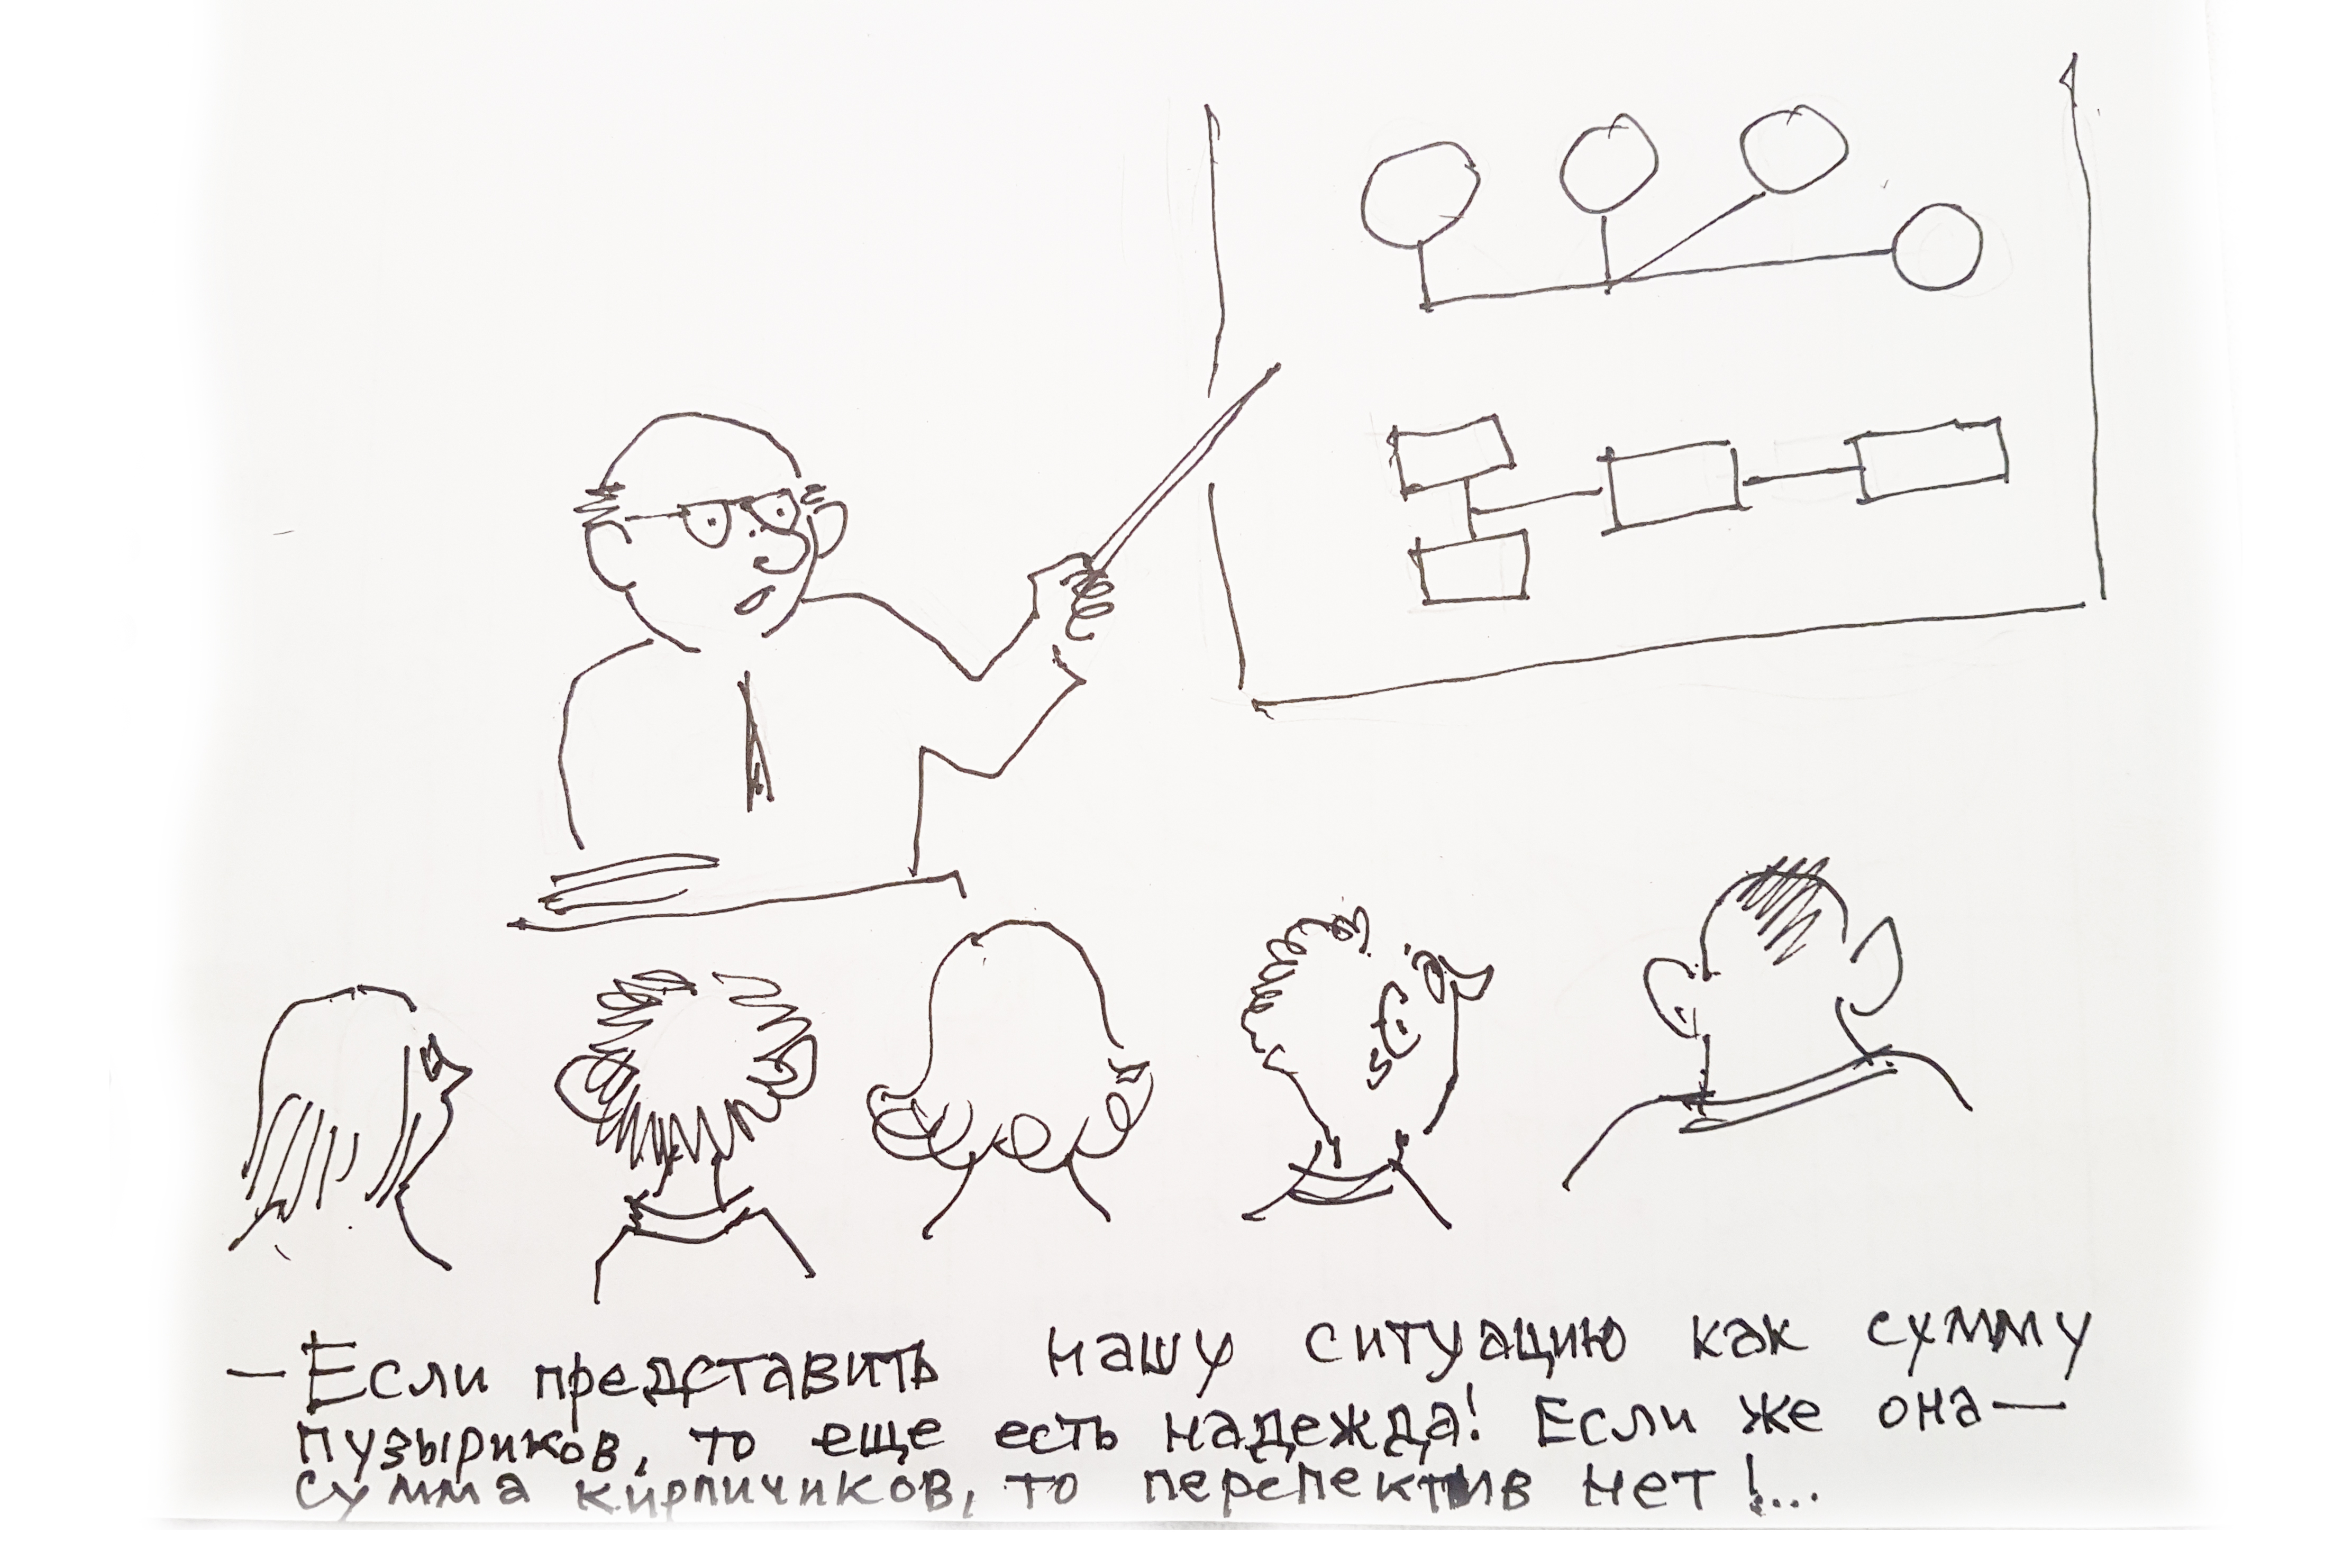 — Если представить нашу ситуацию как сумму
пузыриков, то еще есть надежда! Если же она —
сумма кирпичиков, то перспектив нет!...